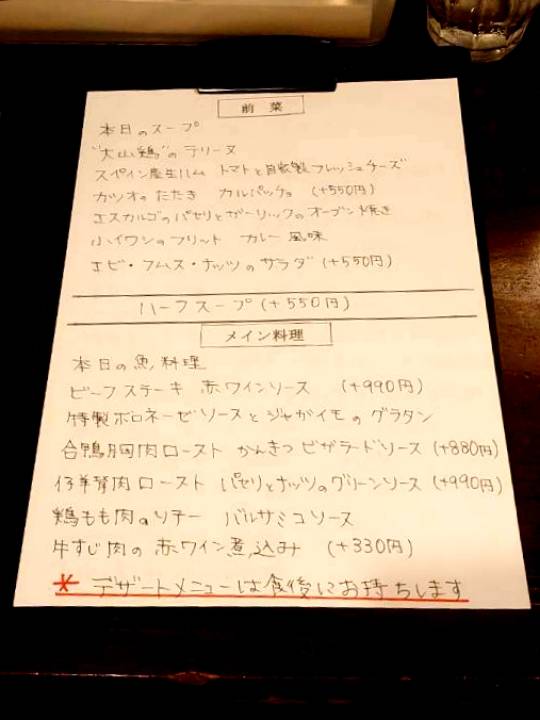 前菜
本日のスープ
"大山鶏"のテリーヌ
スペイン産生ハム トマトと自家製フレッシュチーズ
カツオのたたき カルパッチョ (+550円)
エスカルゴのパセリとガーリックのオーブン焼き
小イワシのフリット カレー風味
エビ・フムス・ナッツのサラダ (+550円)
ハーフスープ (+550円)
メイン料理
本日の魚料理
ビーフステーキ 赤ワインソース (+990円)
特製ボロネーゼソースとジャガイモのグラタン
合鴨胸肉ロースト かんきつビガラードソース (+880円)
仔羊肩肉ロースト パセリとナッツのグリーンソース (+990円)
鶏もも肉のソテー バルサミコソース
牛すじ肉の赤ワイン煮込み (+330円)
* デザートメニューは食後にお持ちします